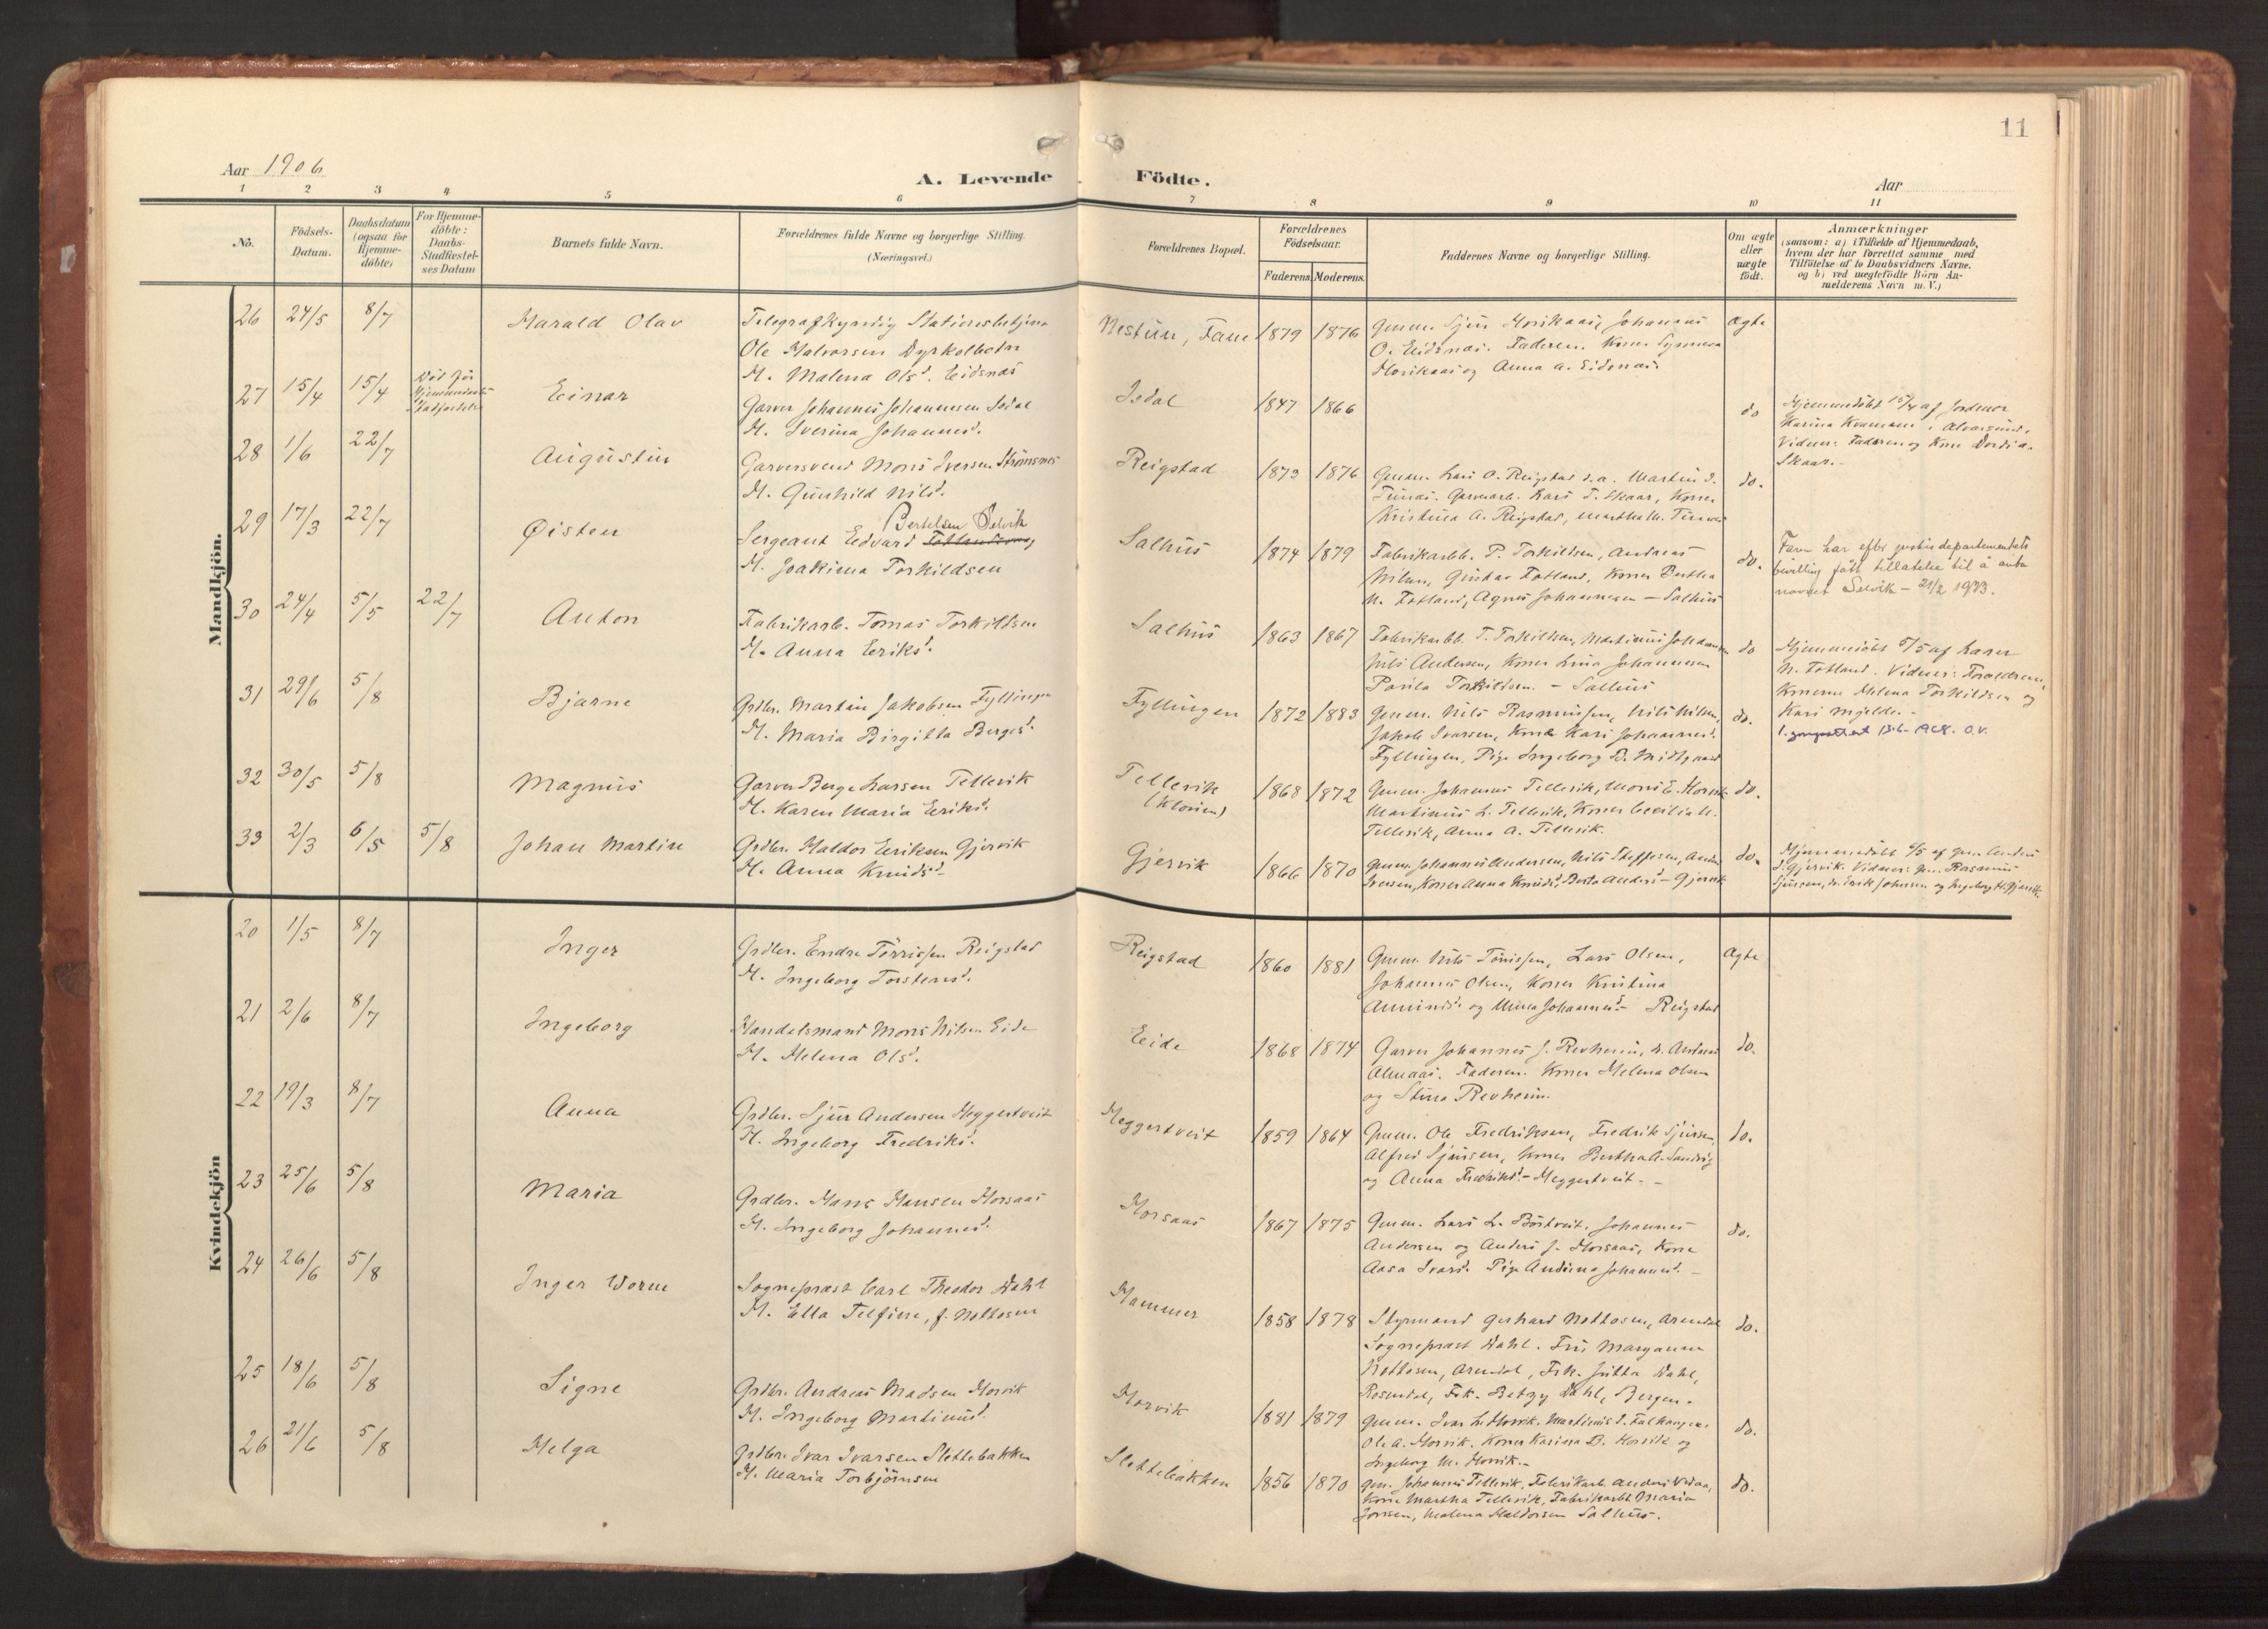 11
Aar 1906
A. Levende Födte.
Aar
1 2 3 4 5 6 7 8 9 10 11
No.
Födsels-
Datum.
Daabsdatum
(ogsaa for
Hjemme-
döbte)
For Hjemme-
döbte:
Daabs-
Stadfæstel-
ses Datum
Barnets fulde Navn.
Forældrenes fulde Navne og borgerlige Stilling.
(Næringsvei.)
Forældrenes Bopæl.
Forældrenes
Födselsaar.
Faderens. Moderens.
Faddernes Navne og borgerlige Stilling.
Om ægte
eller
uægte
födt.
Anmærkninger
(saasom: a) i Tilfælde af Hjemmedaab,
hvem der har forrettet samme med
Tilföielse af to Daabsvidners Navne,
og b) ved uægtefödte Börn An-
melderens Navn m. V.)
Mandkjön.
26 24/5 8/7 Harald Olav
Telegrafkyndig Stationsbetjent
Ole Halvorsen Dyrkolbotn
H. Malena Olsd. Eidsnæs
Nestun, Fane 1879 1876
Gmm. Sjur Horikaas, Johannes
O. Eidsnæs. Faderen. Koner Synneva
Horikaas og Anna A. Eidsnæs.
Ægte
27 15/4 15/4
Död för
Hjemmedaabs
Stadfæstelse
Einar
Garver Johannes Johannessen Isdal
H. Iverina Johannesd.
Isdal 1847 1866 do
Hjemmedöbt 15/4 af Jordmor
Karina Kvamme, Alversund.
Vidner: Faderen og Kone Dordia
Skaar.-
28 1/6 22/7 Augustin
Garversvend Mons Iversen Strömsnes
H. Gunhild Nilsd.
Reigstad 1873 1876
Gmm. Lars O. Reigstad s.a. Martin I.
Tunæs. Garverarb. Lars T. Skaar, Koner
Kristina A. Reigstad, Martha M. Tunæs
do.
29 17/3 22/7 Øisten
Bertelsen Selvik
Sergeant Edvard Totlandsvaag
H. Joakima Torkildsen
Salhus 1874 1879
Fabrikarbb. P. Torkildsen, Andreas
Nilsen, Gustav Totland, Koner Bertha
N. Totland, Agnes Johannessen - Salhus
do.
Faren har efter justisdepartementets
bevilling fått tillatelse til å anta
navnet Selvik - 21/2 1933.
30 24/4 5/5 22/7 Anton
Fabrikarb. Tomas Torkildsen
H. Anna Eriksd.
Salhus 1863 1867
Fabrikarbb. T. Torkildsen, Martinus Johannessen
Nils Andersen, Koner Lina Johannessen
Torkildsen. - Salhus
do
Hjemmedöbt 5/5 af Lærer
N. Totland. Vidner: Forældrene,
Konerne Helena Torkildsen og
Kari Mjelde.-
31 29/6 5/8 Bjarne
Grdbr. Martin Jakobsen Fyllingen
H. Maria Birgitta Bergesd.
Fyllingen 1872 1883
Gmm. Nils Rasmussen, Nils Nilsen,
Jakob Ivarsen, Kone Kari Johannesd.
Fyllingen, Pige Ingeborg B. Midtgaard
do.
1968. O.V.
32 30/5 5/8 Magnus
Garver Berge Larsen Tellevik
H. Karen Maria Eriksd.
Tellevik 1868 1872
Gmm. Johannes Tellevik, Mons E. Horvik
Martinus L. Tellevik, Koner Cecilia M.
Tellevik, Anna A. Tellevik.
do.
33 2/3 6/5 5/8 Johan Martin
Grdbr. Haldor Eriksen Gjervik
H. Anna Knudsd.
Gjervik 1866 1870
Gmm. Johannes Andersen, Nils Steffesen, Anders
Iversen, Koner Anna Knudsd., Berta Andersd. - Gjervik
do.
Hjemmedöbt 6/5 af Gmm. Anders
I. Gjervik. Vidner: Gm. Rasmus
Sjursen, do. Erik Johnsen og Ingeborg H. Gjervik.
Kvindekjön
20 1/5 8/7 Inger
Grdbr. Endre Törrissen Reigstad
H. Ingeborg Torstensd.
Reigstad 1860 1881
Gmm. Nils Törrissen, Lars Olsen,
Johannes Olsen, Koner Kristina
Amundsd. og Unna Johannesd. - Reigstad
Ægte
21 2/6 8/7 Ingeborg
Handelsmand Mons Nilsen Eide
H. Helena Olsd.
Eide 1868 1874
Garver Johannes J. Revheim, do. Andreas
Almaas. Faderen. Koner Helena Olsen
og Stina Revheim.
do.
22 19/3 8/7 Anna
Grdbr. Sjur Andersen Heggertveit
H. Ingeborg Fredriksd.
Heggertveit 1859 1864
Gmm. Ole Fredriksen, Fredrik Sjursen,
Alfred Sjursen, Koner Bertha A. Sandvig
og Anna Fredriksd. - Heggertveit. -
do.
23 25/6 5/8 Maria
Grdbr. Hans Hansen Horsaas
H. Ingeborg Johannesd.
Horsaas 1867 1875
Gmm. Lars L. Börtveit, Johannes
Andersen og Anders J. Horsaas, Kone
Aasa Ivarsd. Pige Andrena Johannesd. -
do.
24 26/6 5/8 Inger Worm
Sognepræst Carl Theodor Dahl
H. Ella Telfine, f. Nottosen
Hammer 1858 1878
Styrmand Gerhard Nottosen, Arendal
Sognepræst Dahl. Fru Maryanne
Nottosen, Arendal, Frk. Jutta Dahl,
Rosendal, Frk. Betzy Dahl, Bergen.
do.
25 18/6 5/8 Signe
Grdbr. Andreas Madsen Horvik
H. Ingeborg Martinusd.
Horvik 1881 1879
Gmm. Ivar L. Horvik, Martinus I. Falkanger.
Ole A. Horvik. Koner Karina B. Horvik og
Ingeborg M. Horvik.-
do.
26 21/6 5/8 Helga
Grdbr. Ivar Ivarsen Slettebakken
H. Maria Torbjörnsen
Slettebakken 1856 1870
Gm. Johannes Tellevik, Fabrikarb. Anders Vedaa,
Kone Martha Tellevik, Fabrikarbb. Maria
Jonsen, Malena Haldorsen Salhus.
do.